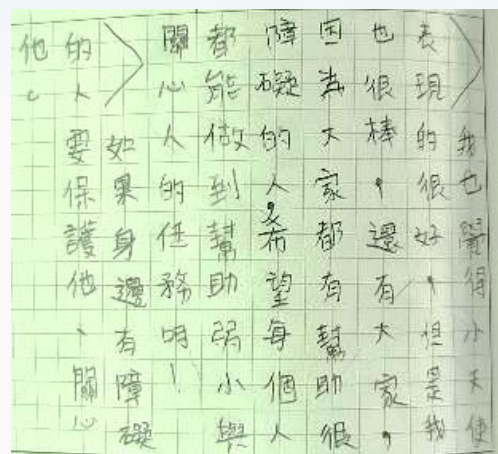 我也覺得小天使
表現的很好，但是我
也很棒，還有大家，
因為大家都有幫助很
障礙的人，希望每個人
都能做到幫助弱小與
關心人的任務！
如果身邊有障礙
的人要保護他、關心
他。